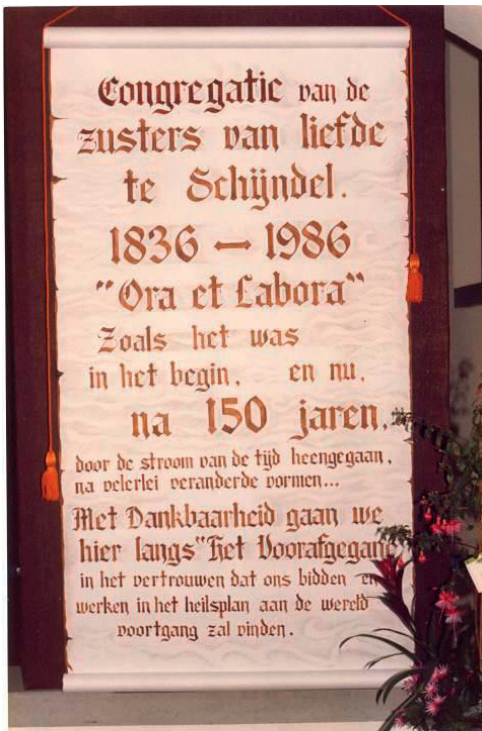 Congregatie van de
zusters van liefde
te Schijndel.
1836 — 1986
"Ora et Labora"
Zoals het was
in het begin, en nu,
na 150 jaren,
door de stroom van de tijd heengegaan,
na velerlei veranderde vormen...
Met Dankbaarheid gaan we
hier langs "Het Voorafgegane
in het vertrouwen dat ons bidden en
werken in het heilsplan aan de wereld
voortgang zal vinden.